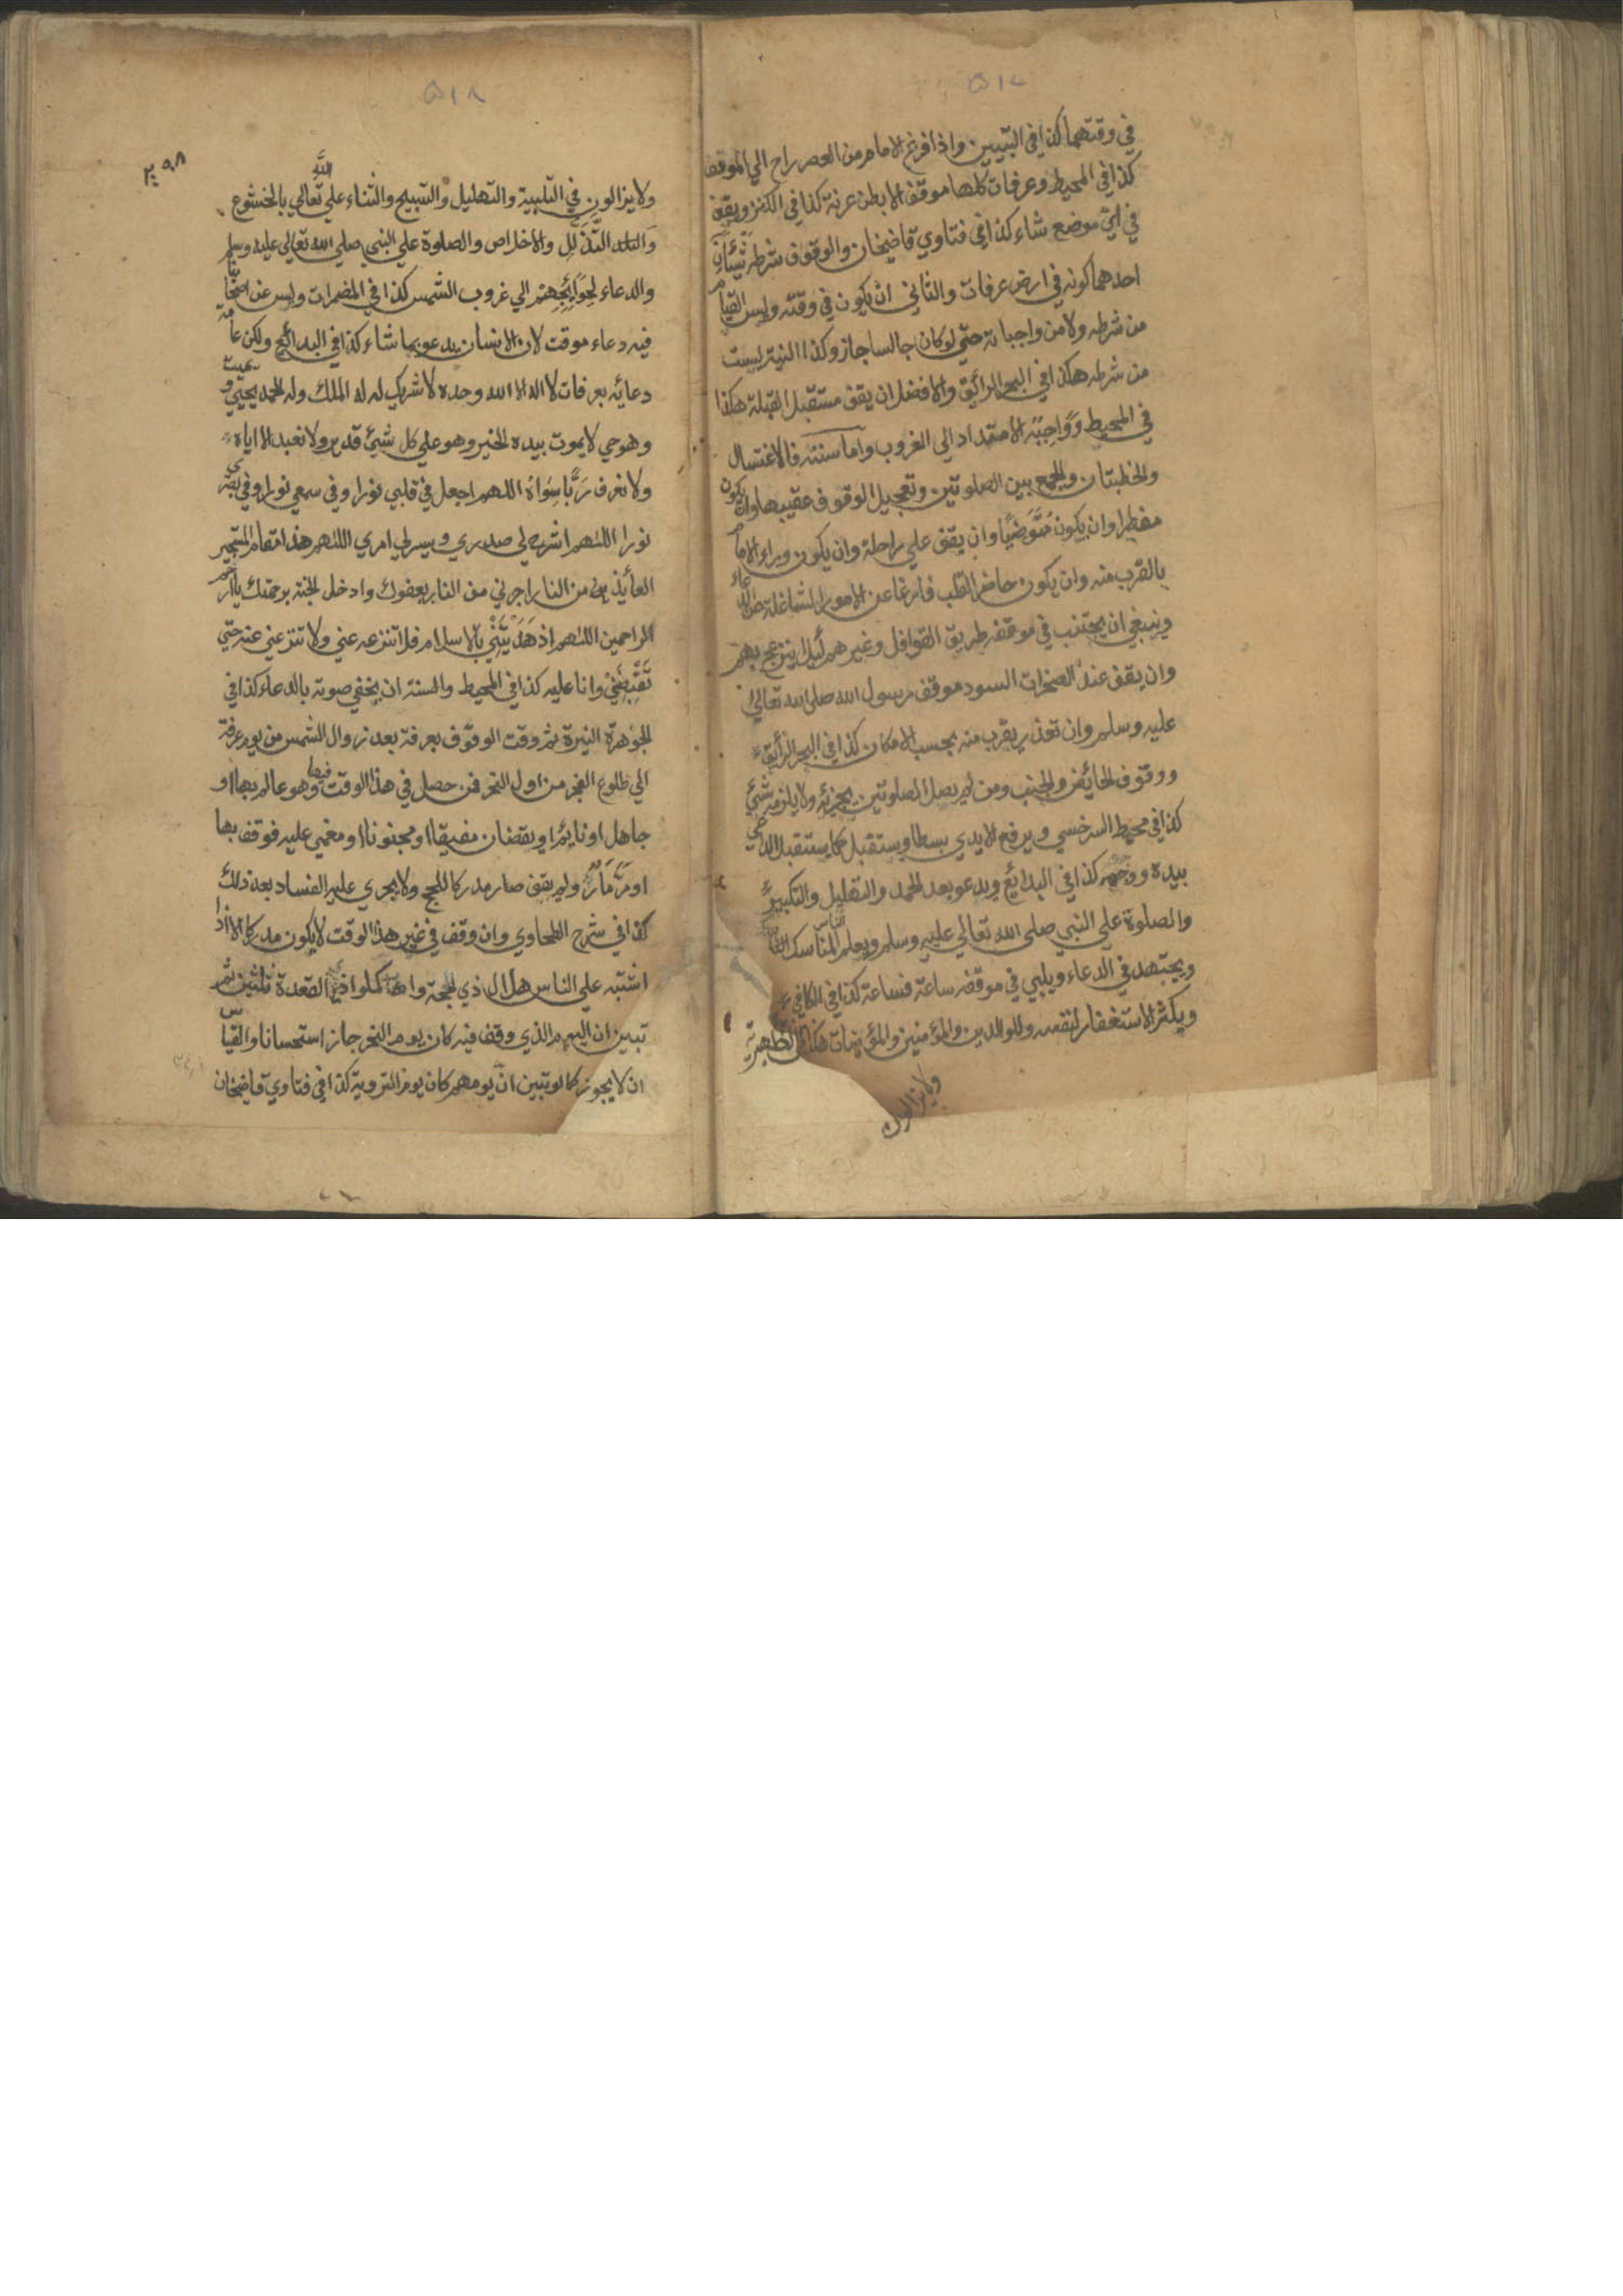 ٥١٧
في وقتهما كذا في التبيين واذا فرغ الامام من العصر راح الي الموقف
كذا في المحيط وعرفات كلها موقف الا بطن عرنة كذا في الكنز ويقف
في اي موضع شاء كذا في فتاوي قاضيخان والوقوف شرطه شيئان
احدهما كونه في ارض عرفات والثاني ان يكون في وقته وليس القيام
من شرطه ولا من واجباته حتي لو كان جالسا جاز وكذا النية ليست
من شرطه هكذا في البحر الرائق والافضل ان يقف مستقبل القبلة هكذا
في المحيط وَوَاجِبُه الامتداد الي الغروب واما سننه فالاغتسال
والخطبتان والجمع بين الصلوتين وتعجيل الوقوف عقيبهما وان يكون
مفطرا وان يكون مُتَوَضِيًا وان يقف علي راحلة وان يكون وراء الامام
بالقرب منه وان يكون حاضر القلب فارغا عن الامور الشاغلة عن الدعاء
وينبغي ان يجتنب في موقفه طريق القوافل وغيرهم لئلا ينزعج بهم
وان يقف عند الصخرات السود موقف رسول الله صلي الله تعالي
عليه وسلم وان تعذر يقرب منه بحسب الامكان كذا في البحر الرائق
ووقوف الحائض والجنب ومن لم يصل الصلوتين يجزئه ولا يلزمه شئ
كذا في محيط السرخسي ويرفع الايدي بسطا ويستقبل كما يستقبل الداعي
بيده ووجهه كذا في البدائع ويدعو بعد الحمد والتهليل والتكبير
والصلوة علي النبي صلي الله تعالي عليه وسلم ويعلم الناس المناسك
ويجتهد في الدعاء ويلبي في موقفه ساعة فساعة كذا في الكافي
ويكثر الاستغفار لنفسه وللوالدين والمؤمنين والمؤمنات هكذا في الظهيرية
ولا يزالون
٥١٨
٢٠٩٨
ولا يزالون في التلبية والتهليل والتسبيح والثناء علي الله تعالي بالخشوع
والتذلل والاخلاص والصلوة علي النبي صلي الله تعالي عليه وسلم
والدعاء لِحَوَائِجِهِمْ الي غروب الشمس كذا في المضمرات وليس عن اصحابنا
فيه دعاء موقت لان الانسان يدعو بما شاء كذا في البدائع ولكن عامة
دعائه بعرفات لا اله الا الله وحده لا شريك له له الملك وله الحمد يحيي ويميت
وهو حي لا يموت بيده الخير وهو علي كل شيئ قدير ولا نعبد الا اياه
ولا نعرف رَبًّا سِوَاهُ اللهم اجعل في قلبي نورا وفي سمعي نورا وفي بصري
نورا اللهم اشرح لي صدري ويسر لي امري اللهم هذا مقام المستجير
العائذ من النار اجرني من النار بعفوك وادخل الجنة برحمتك يا ارحم
الراحمين اللهم اذ هَدَيْتَنِيْ بالاسلام فلا تنزعه عني ولا تنزعني عنه حتي
تَقْبِضَنِيْ وانا عليه كذا في المحيط والسنة ان يخفي صوته بالدعاء كذا في
الجوهرة النيرة ثم وقت الوقوف بعرفة بعد زوال الشمس من يوم عرفة
الي طلوع الفجر من اول النحر فمن حصل في هذا الوقت فيها وهو عالم بها او
جاهل او نايم او يقضان مفيقا او مجنونا او مغمي عليه فوقف بها
او مَرَّ مَارٌّ ولم يقف صار مدركا للحج ولا يجري عليه الفساد بعد ذلك
كذا في شرح الطحاوي وان وقف في غير هذا الوقت لا يكون مدركا الا اذا
اشتبه علي الناس هلال ذي الحجة واكملوا ذي القعدة ثلثين ثم
تبين ان اليوم الذي وقف فيه كان يوم النحر جاز استحسانا والقياس
ان لا يجوز كما لو تبين ان يومهم كان يوم التروية كذا في فتاوي قاضيخان